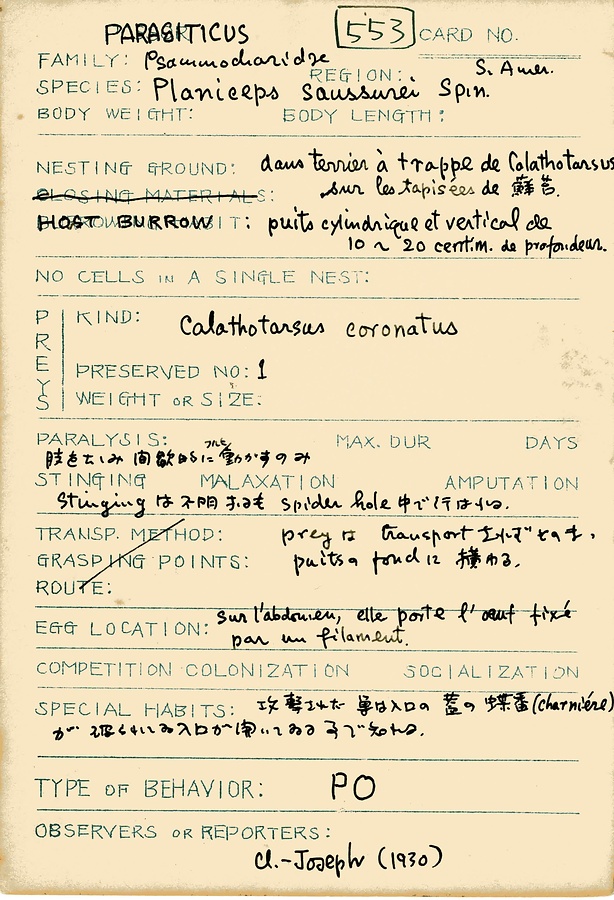 PARASITICUS
553 CARD NO.
FAMILY: Psammocharidae
REGION: S. Amer.
SPECIES: Planiceps saussurei Spin.
BODY WEIGHT: BODY LENGTH:
NESTING GROUND: dans terrier à trappe de Calathotarsus
CLOSING MATERIALS: sur les tapisées de 蘚苔.
HOST BURROW: puits cylindrique et vertical de
10 ~ 20 centim. de profondeur.
NO CELLS IN A SINGLE NEST:
PREYS
KIND: Calathotarsus coronatus
PRESERVED NO: 1
WEIGHT OR SIZE:
PARALYSIS: MAX. DUR DAYS
肢を 間歇的に動かすのみ
STINGING MALAXATION AMPUTATION
Stinging は不明 するも spider hole 中で行はれる.
TRANSP. METHOD: prey は transport されずそのまゝ
GRASPING POINTS: puitsの fond に 横わる.
ROUTE:
EGG LOCATION: sur l'abdomen, elle porte l'œuf fixé
par un filament.
COMPETITION COLONIZATION SOCIALIZATION
SPECIAL HABITS: 攻撃された 巣は入口の 蓋の 蝶番(charnière)
が 破られ 入口が開いてゐるので知れる.
TYPE OF BEHAVIOR: PO
OBSERVERS OR REPORTERS:
Cl.-Joseph (1930)